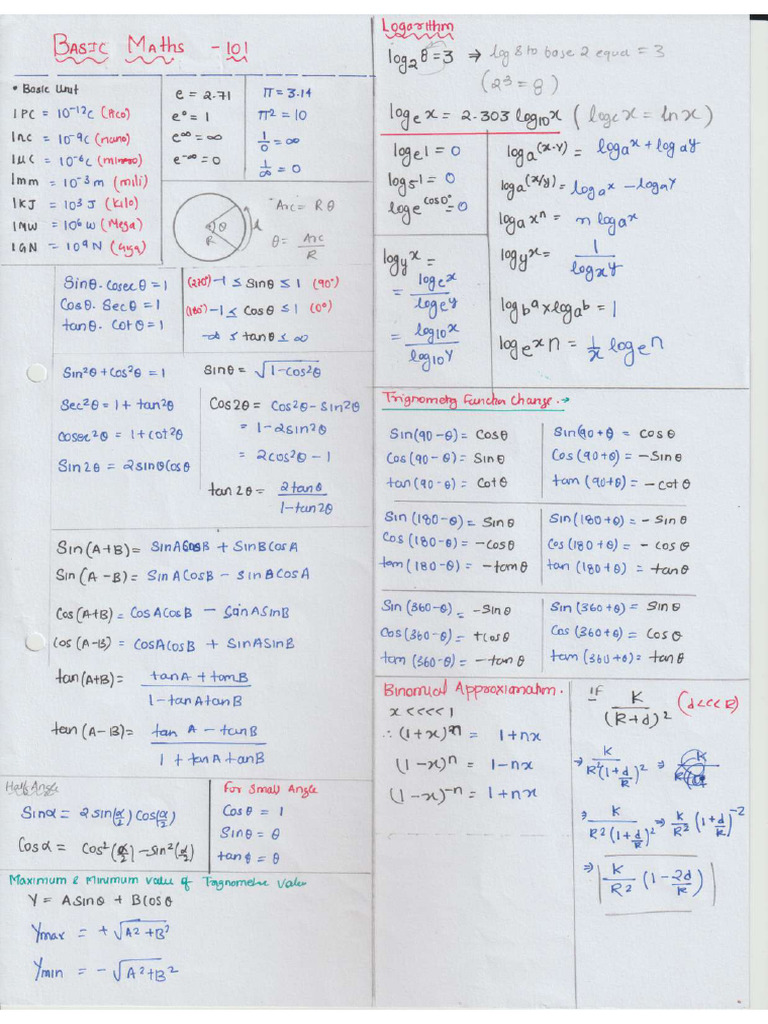 BASIC MATHS - 101
• Basic Unit
1PC = 10⁻¹²C (Pico)
1nc = 10⁻⁹C (nano)
1µC = 10⁻⁶C (micro)
1mm = 10⁻³m (mili)
1KJ = 10³J (Kilo)
1MW = 10⁶W (Mega)
1GN = 10⁹N (Giga)
e = 2.71
e⁰ = 1
e^∞ = ∞
e^-∞ = 0
π = 3.14
π² = 10
1/0 = ∞
1/∞ = 0
θ
R
Arc = Rθ
θ = Arc/R
Sinθ. cosecθ = 1
Cosθ. Secθ = 1
tanθ. Cotθ = 1
(270°) -1 ≤ Sinθ ≤ 1 (90°)
(180°) -1 ≤ Cosθ ≤ 1 (0°)
-∞ ≤ tanθ ≤ ∞
Sin²θ + Cos²θ = 1
Sec²θ = 1 + tan²θ
cosec²θ = 1 + cot²θ
Sin2θ = 2sinθcosθ
Sinθ = √1-Cos²θ
Cos2θ = Cos²θ - Sin²θ
= 1 - 2sin²θ
= 2cos²θ - 1
tan2θ = 2tanθ/1-tan²θ
Sin(A+B) = SinACosB + SinBCosA
Sin(A-B) = SinACosB - SinBCosA
Cos(A+B) = CosACosB - SinASinB
Cos(A-B) = CosACosB + SinASinB
tan(A+B) = tanA + tanB/1-tanAtanB
tan(A-B) = tanA - tanB/1+tanAtanB
Half Angle
Sinα = 2sin(α/2)Cos(α/2)
Cosα = Cos²(α/2) - sin²(α/2)
For Small Angle
Cosθ = 1
Sinθ = θ
tanθ = θ
Maximum & Minimum value of Trignometric Value
Y = ASinθ + BCosθ
Ymax = +√A²+B²
Ymin = -√A²+B²
Logarithm
log₂8 = 3 ⇒ log 8 to base 2 equal = 3
(2³ = 8)
logₑx = 2.303 log₁₀x (logₑx = lnx)
logₑ1 = 0
log₅1 = 0
logₑcos0° = 0
logₐ(x.y) = logₐx + logₐy
logₐ(x/y) = logₐx - logₐy
logₐxⁿ = n logₐx
log_y x =
= logₑx/logₑy
= log₁₀x/log₁₀y
log_y x = 1/log_x y
log_b a × log_a b = 1
log_eˣ n = 1/x logₑn
Trignometry Function Change →
Sin(90-θ) = Cosθ
Cos(90-θ) = Sinθ
tan(90-θ) = Cotθ
Sin(90+θ = Cosθ
Cos(90+θ) = -Sinθ
tan(90+θ) = -cotθ
Sin(180-θ) = Sinθ
Cos(180-θ) = -Cosθ
tan(180-θ) = -tanθ
Sin(180+θ) = -Sinθ
Cos(180+θ) = -cosθ
tan(180+θ) = tanθ
Sin(360-θ) = -Sinθ
Cos(360-θ) = +Cosθ
tan(360-θ) = -tanθ
Sin(360+θ) = Sinθ
Cos(360+θ) = Cosθ
tan(360+θ) = tanθ
Binomial Approximation.
x <<<< 1
∴ (1+x)ⁿ = 1+nx
(1-x)ⁿ = 1-nx
(1-x)⁻ⁿ = 1+nx
if K/(R+d)² (d<<<R)
⇒ K/R²(1+d/R)² ⇒
⇒ K/R²(1+d/R)² ⇒ K/R² (1+d/R)⁻²
⇒ K/R² (1-2d/R)